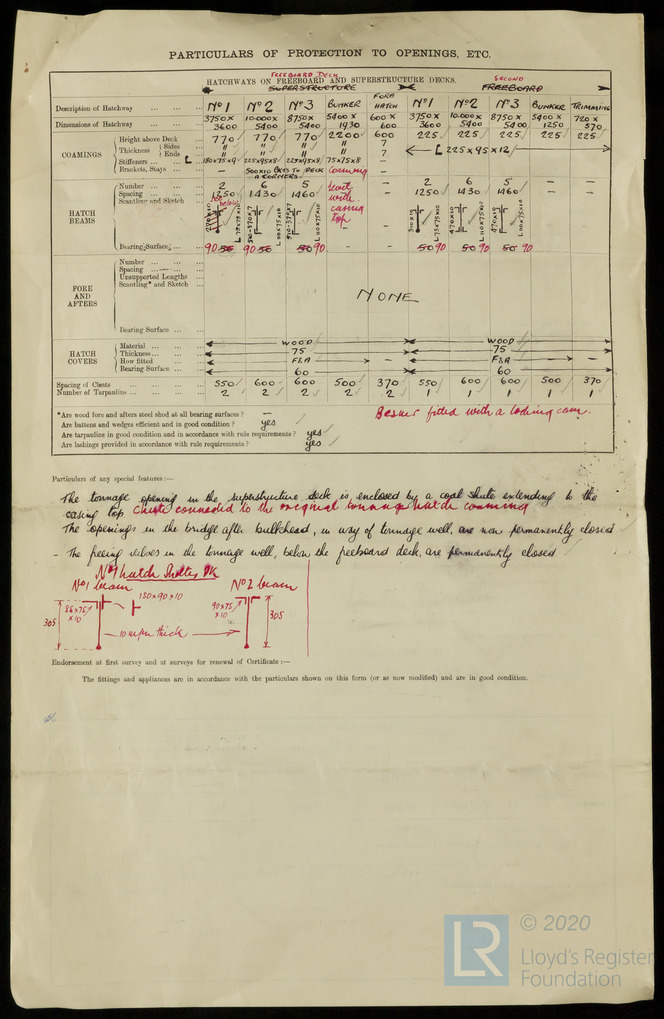 PARTICULARS OF PROTECTION TO OPENINGS, ETC.
FREEBOARD DECK SECOND
HATCHWAYS ON FREEBOARD AND SUPERSTRUCTURE DECKS.
SUPERSTRUCTURE FREEBOARD
Description of Hatchway ... ... ... No 1 No 2 No 3 BUNKER FORE HATCH No 1 No 2 No 3 BUNKER TRIMMING
Dimensions of Hatchway ... ... ... 3750 x 3600 10.000 x 5400 8750 x 5400 5400 x 1930 600 x 600 3750 x 3600 10.000 x 5400 8750 x 5400 5400 x 1250 720 x 570
COAMINGS
Height above Deck ... 770 770 770 2200 600 225 225 225 225 225
Thickness Sides ... " " " " 7 L 225 x 95 x 12
Ends ... " " " " 7
Stiffeners ... ... L ... 180x75x9 225x95x8 225x95x8 75x75x8 —
Brackets, Stays ... ... — 500x10 BKTS TO DECK & CORNERS coaming —
HATCH BEAMS
Number ... ... ... 2 6 5 — 2 6 5 — —
Spacing ... ... ... 1250 1430 1460 — 1250 1430 1460 — —
Scantling and Sketch ... See below
with casing top
L 75x75x10 L 110x75x10 L 75x75x10 L 110x75x10 L 110x75x10
Bearing Surface ... ... 90 50 90 50 50 90 — — 50 90 50 90 50 90 — —
FORE AND AFTERS
Number ... ... ...
Spacing ... ... ...
Unsupported Lengths
Scantling* and Sketch ...
NONE
Bearing Surface ... ...
HATCH COVERS
Material ... ... ... WOOD WOOD
Thickness ... ... ... 75 75
How fitted ... ... F&A — F&A —
Bearing Surface ... ... 60 60
Spacing of Cleats ... ... ... 550 600 600 500 370 550 600 600 500 370
Number of Tarpaulins ... ... ... 2 2 2 2 2 1 1 1 1 1
*Are wood fore and afters steel shod at all bearing surfaces ? —
Are battens and wedges efficient and in good condition ? yes
Are tarpaulins in good condition and in accordance with rule requirements ? yes
Are lashings provided in accordance with rule requirements ? yes
fitted with a locking cam.
Particulars of any special features :—
The tonnage opening in the superstructure deck is enclosed by a coal shute extending to the
casing top chute connected to the original tonnage hatch coaming
The openings in the bridge after bulkhead, in way of tonnage well, are now permanently closed
- The freeing valves in the tonnage well, below the freeboard deck, are permanently closed
No 1 hatch Shelter Dk
No 1 beam No 2 beam
150 x 90 x 10
85 x 75 x 10 90 x 75 x 10
305 305
10 m/m thick
Endorsement at first survey and at surveys for renewal of Certificate :—
The fittings and appliances are in accordance with the particulars shown on this form (or as now modified) and are in good condition.
LR
© 2020
Lloyd's Register
Foundation